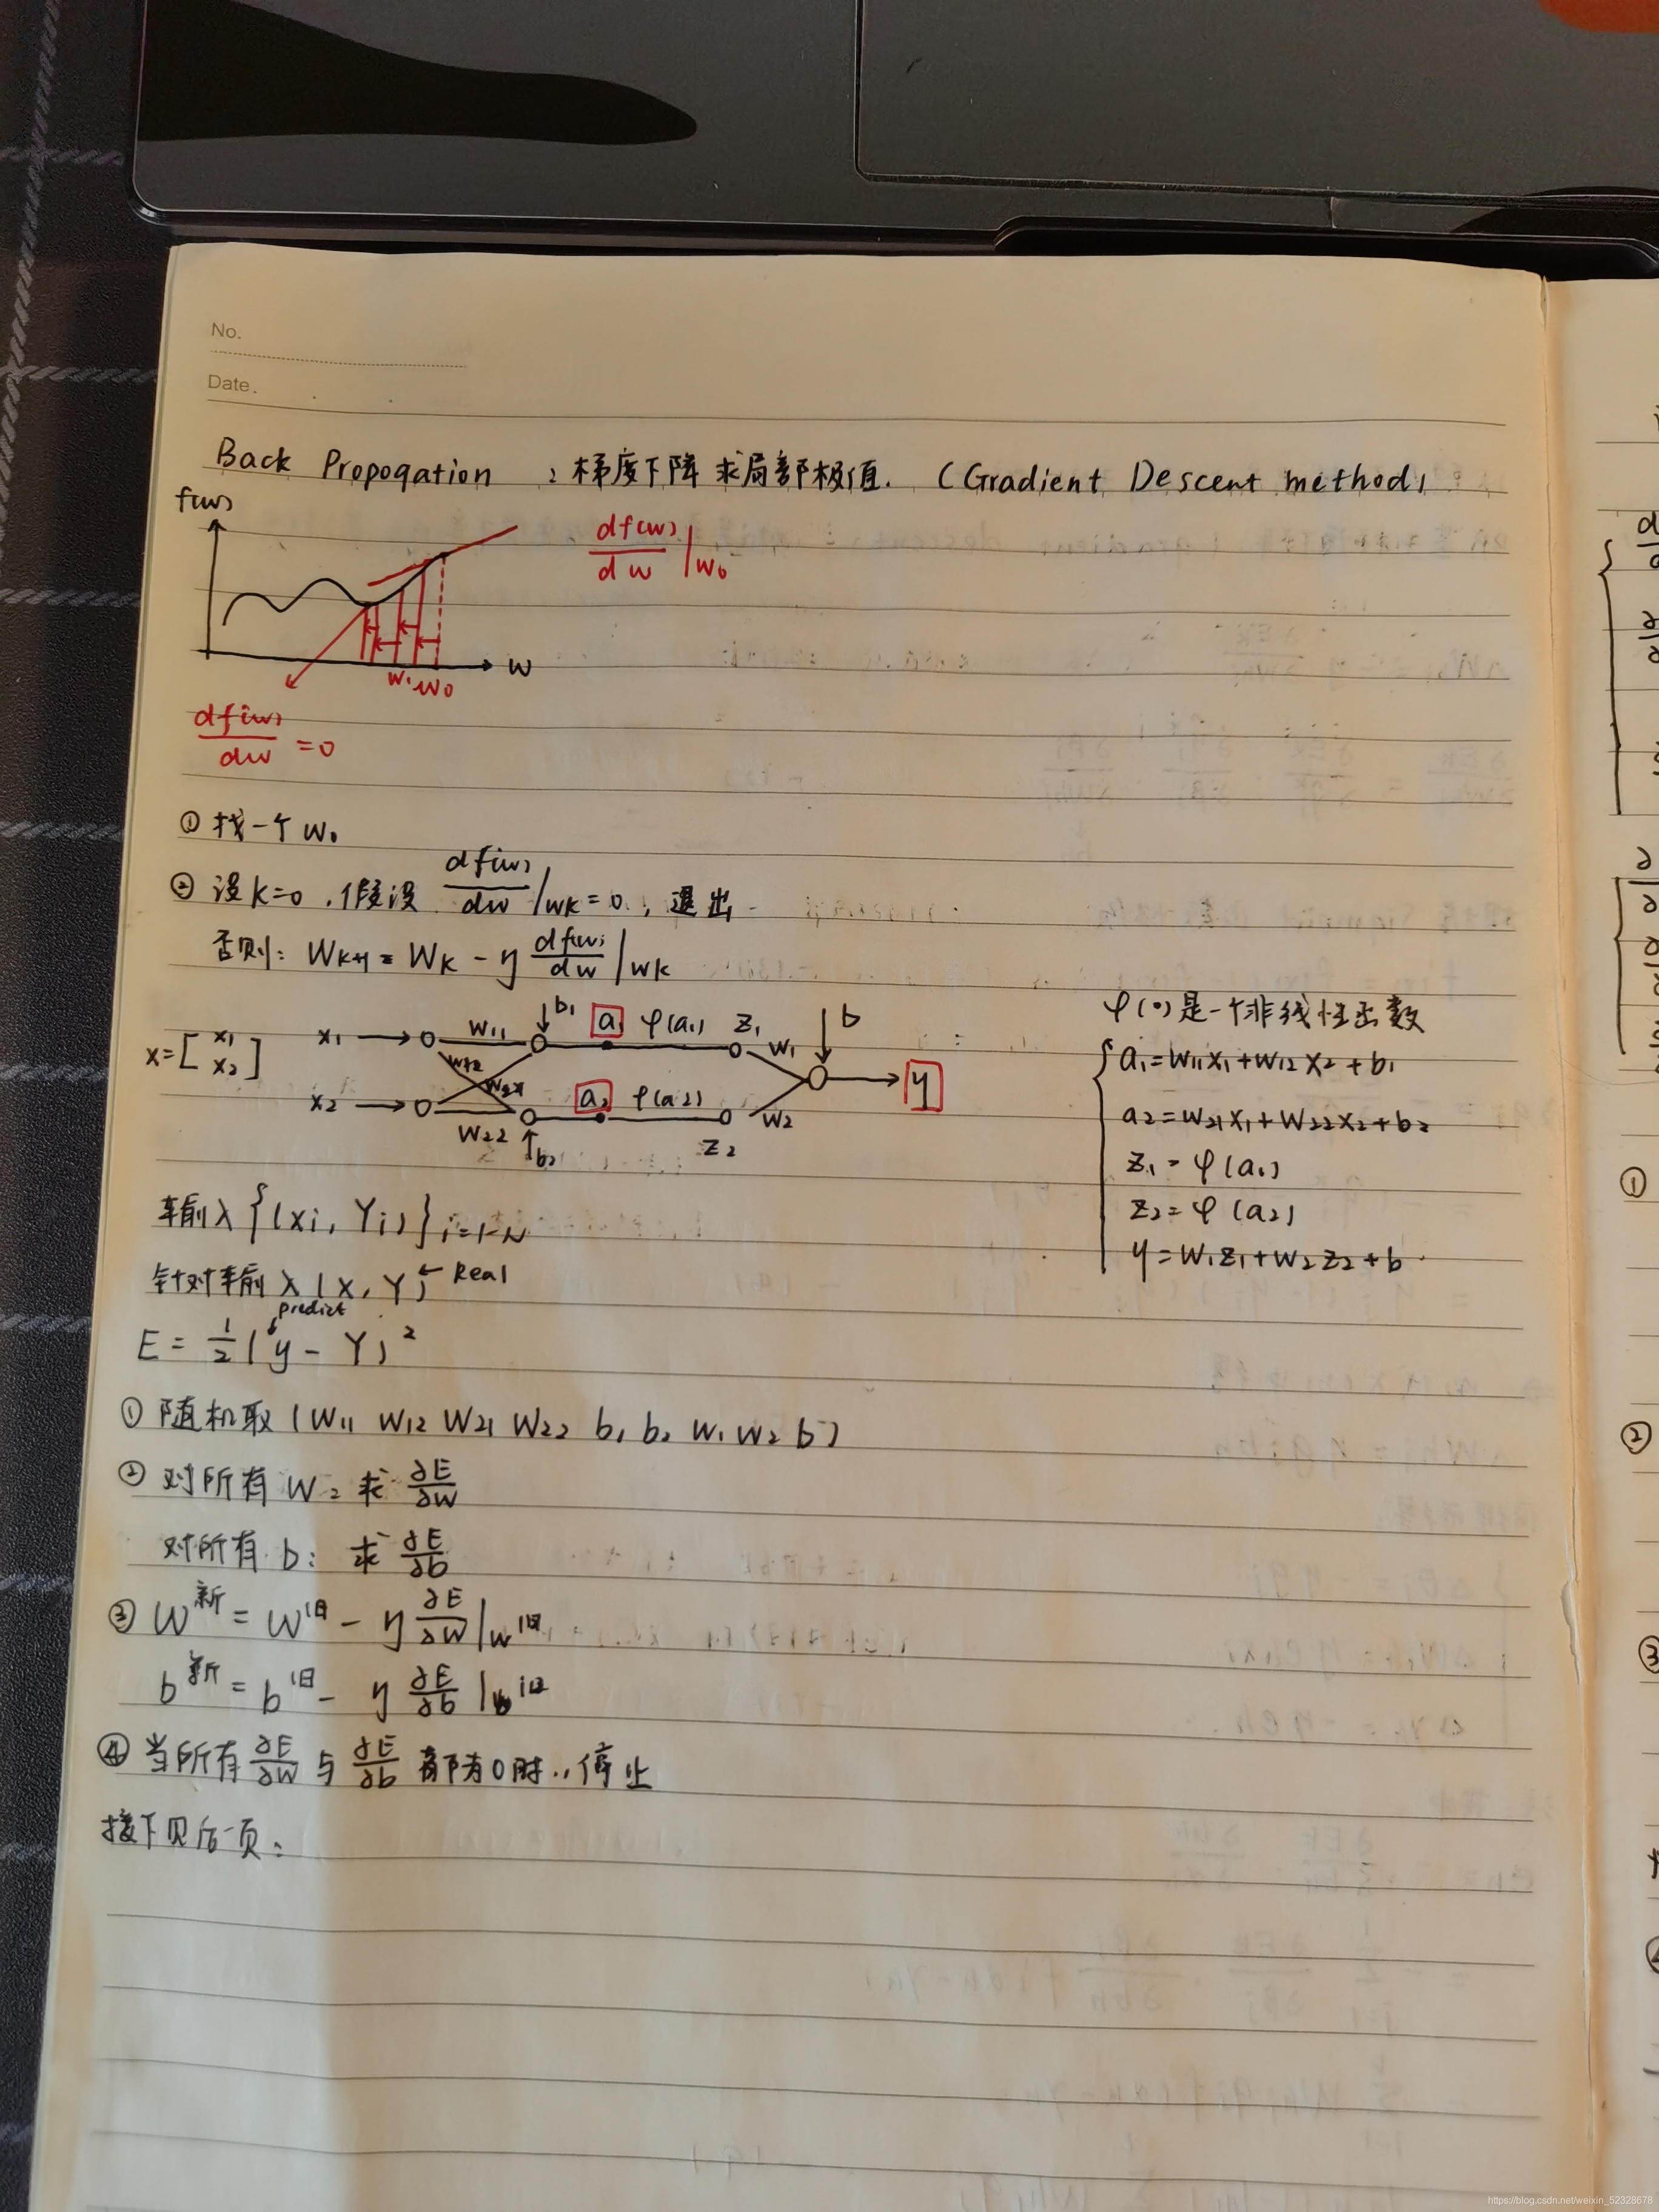 No.
Date.
Back Propogation : 梯度下降求局部极值. (Gradient Descent method)
f(w)
df(w)/dw |w0
w
w1 w0
df(w)/dw = 0
① 找一个 w0
② 设 k=0, 假设 df(w)/dw |wk = 0, 退出
否则: Wk+1 = Wk - η df(w)/dw |wk
φ(·)是一个非线性函数
x = [x1 x2]
x1 w11 b1 a1 φ(a1) z1 w1 b
w12 w21 y
x2 w22 b2 a2 φ(a2) z2 w2
a1 = w11x1 + w12x2 + b1
a2 = w21x1 + w22x2 + b2
z1 = φ(a1)
z2 = φ(a2)
y = w1z1 + w2z2 + b
输入 {(xi, Yi)} i=1~N
针对输入 (x, Y) ← Real
predict
E = 1/2 (y - Y)²
① 随机取 (w11 w12 w21 w22 b1 b2 w1 w2 b)
② 对所有 w: 求 ∂E/∂w
对所有 b: 求 ∂E/∂b
③ w新 = w旧 - η ∂E/∂w |w旧
b新 = b旧 - η ∂E/∂b |b旧
④ 当所有 ∂E/∂w 与 ∂E/∂b 都为0时, 停止
接下见后一页:
①
②
③
https://blog.csdn.net/weixin_52328678